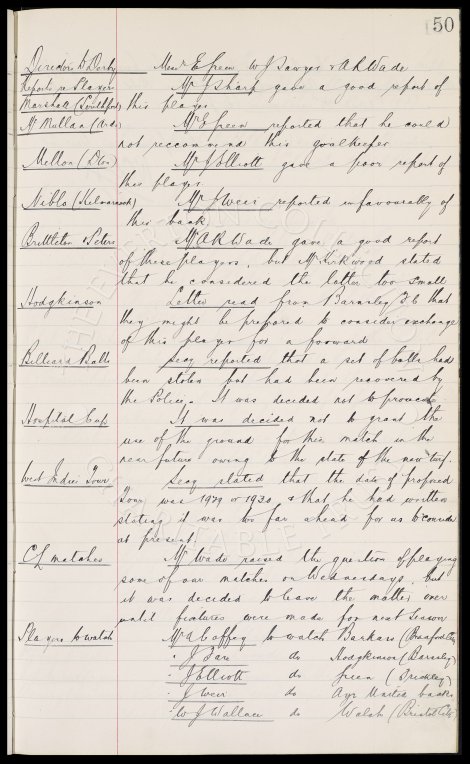 50
Directors to Derby Messrs E Green W J Sawyer & A R Wade
Reports re Players Mr J Sharp gave a good report of
Marshall (Southport) this player
McMullan (Ards) Mr E Green reported that he could
not reccommend this goalkeeper
Mellon (Dbn) Mr J Elliott gave a poor report of
this player
Niblo (Kilmarnock) Mr J Weir reported unfavourably of
this back
Brittleton & Peters Mr A R Wade gave a good report
of these players, but Mr Kirkwood stated
that he considered the latter too small
Hodgkinson Letter read from Barnsley F.C that
they might be prepared to consider exchange
of this player for a forward
Billiard Balls Secy reported that a set of balls had
been stolen but had been recovered by
the Police. It was decided not to prosecute
Hospital Cup It was decided not to grant the
use of the ground for this match in the
near future owing to the state of the new turf.
West Indies Tour Secy stated that the date of proposed
Tour was 1929 or 1930, & that he had written
stating it was too far ahead for us to consider
at present.
CL matches Mr Wade raised the question of playing
some of our matches on Wednesdays, but
it was decided to leave the matter over
until fixtures were made for next season
Players to watch Mr A Coffey to watch Barkas (Bradford City)
" J do Hodgkinson (Barnsley)
" J Elliott do Green (Brickley)
" J Weir do Ayr United backs
" W J Wallace do Walsh (Bristol City)